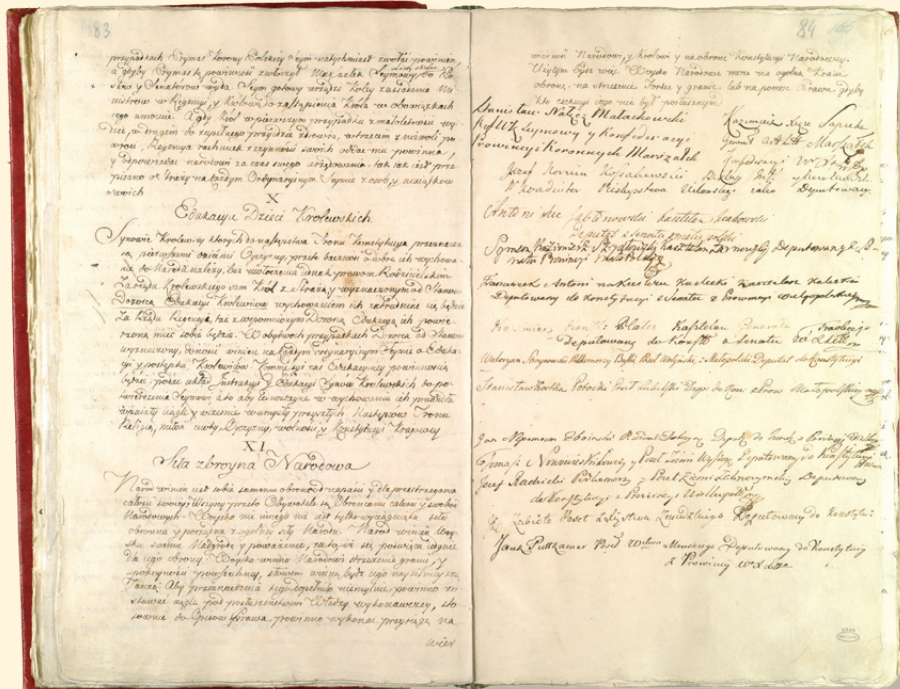 83
przypadkach Prymas Korony Polskiey Seym natychmiast zwołać powinien,
a gdyby Prymas tę powinność zwłoczył Marszałek Seymowy do Po-
Listy okolne
słow y Senatorow wyda. Seym gotowy urządzi koley zasiadania Mi-
nistrow w Regencyi, y Krolową do zastąpienia Krola w obowiązkach
iego umocuie. A gdy Krol w pierwszym przypadku z małoletności wyi-
dzie, w drugim do zupełnego przyidzie zdrowia, w trzecim z niewoli po-
wroci, Regencya rachunek z czynności swoich oddać mu powinna,
y odpowiadać narodowi za czas swego urzędowania, tak iak iest prze-
pisano o Straży na każdym Ordynaryinym Seymie z osob, y maiątkow
swoich.
X
Edukacya Dzieci Krolewskich.
Synowie Krolewscy, ktorych do następstwa Tronu Konstytucya przeznacza
są pierwszemi dziećmi Oyczyzny, przeto baczność o dobre ich wychowa-
nie do Narodu należy, bez uwłoczenia iednak prawom Rodzicielskim.
Za rządu Krolewskiego sam Krol z Strażą y wyznaczonym od Stanow
Dozorcą Edukacyi Krolewicow wychowaniem ich zatrudniać się będzie.
Za rządu Regencyi, taż z wspomnionym Dozorcą Edukacyą ich powie-
rzoną mieć sobie będzie. W obydwoch przypadkach Dozorca od Stanow
wyznaczony, donosić winien na każdym ordynaryinym Seymie o Eduka-
cyi y postępku Krolewicow. Kommissyi zaś Edukacyiney powinnością
będzie, podać układ Instrukcyi y Edukacyi Synow Krolewskich do po-
twierdzenia Seymowi, a to aby iednostayne w wychowaniu ich prawidła
wpaiały ciągle y wcześnie w umysły przyszłych Następcow Tronu
Religią, miłość cnoty, Oyczyzny, wolności, y Konstytucyi Kraiowey
XI
Siła zbroyna Narodowa
Narod winien iest sobie samemu obronę od napaści y dla przestrzegania
całości swoiey. Wszyscy przeto Obywatele są Obrońcami całości y swobod
Narodowych. Woysko nic innego nie iest tylko wyciągnięta siła
obronna y porządna z ogolney siły Narodu. Narod winien Woy-
sku swemu Nadgrodę y poważanie, za to iż się poswięca iedynie
dla iego obrony. Woysko winno Narodowi strzeżenie granic, y
spokoyności powszechney, słowem winno być iego naysilnieyszą
Tarczą: Aby przeznaczenia tego dopełniło niemylnie, powinno zo-
stawać ciągle pod posłuszeństwem Władzy wykonawczey, sto-
sownie do Opisow Prawa, powinno wykonać przysięgę na
wier
84
wierność Narodowi, y Krolowi y na obronę Konstytucyi Narodowey.
Użytym być więc Woysko Narodowe może na ogolną Kraiu
obronę, na strzeżenie Fortec y granic, lub na pomoc Prawu, gdyby
kto exekucyi iego nie był posłusznym
Stanisław Nałęcz Małachowski
Seymowy y Konfederacyi
Prowincyi Koronnych Marszałek
Kazimierz Xże Sapieha
Marszałek
Konfederacyi W. X. Lit.
Jozef Korwin Kossakowski Biskup Infl. y Kurlandzki
Koadiutor Biskupstwa Wilenskiego iako Deputowany
Antoni Xże Jabłonowski Kasztelan Krakowski
Deputat z Senatu
Symeon Kazimierz Szydłowski Kasztelan Żarnowski Deputowany z Se-
natu Prowincyi
Franciszek Antoni na Kwilczu Kwilecki Kasztelan Kaliski
Deputowany do Konstytucyi z Senatu z Prowincyi wielgopolskiey
Plater Kasztelan Trocki
Deputowany do Konst: z Senatu W. X. Litt.
Waleryan Stroynowski Podkomorzy Buski Poseł Wołyński z Małopolski Deputat do Konstytucyi
Stanisław Kostka Potocki Poseł Lubelski Dep: do Kon: z Prow. Małopolskiey
Jan Nepomucen Zboinski Poseł Ziemi Dobrzyn. Deput: do Konst: z Prowincyi Wielkop.
Tomasz Nowowieski Łowczy y Poseł Ziemi Wyszogr. Deputowany do Konstytucyi
Jozef Radzicki Podkomorzy y Poseł Ziemi Zakroczymskiey Deputowany
do Konstytucyi z Prowincyi Wielkopolskiey
Zabiełło Poseł z Xięstwa Żmudzkiego Deputowany do Konstytu:
Jacek Puttkamer Poseł Wdztwa Minskiego Deputowany do Konstytucyi
z Prowincyi W. X. Litt.